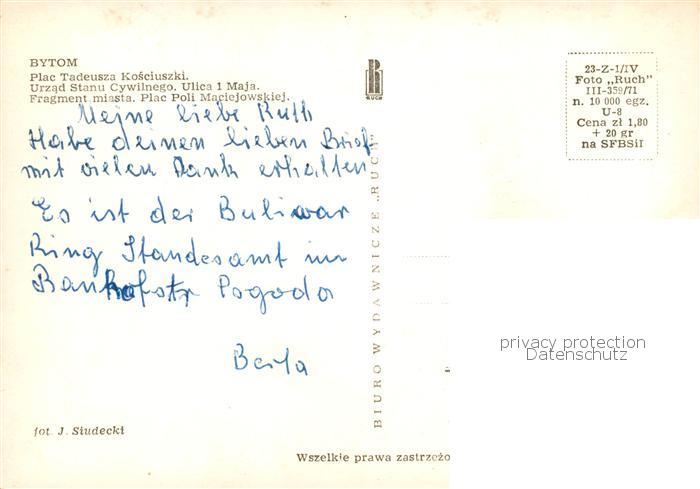 BYTOM
Plac Tadeusza Kościuszki.
Urząd Stanu Cywilnego. Ulica 1 Maja.
Fragment miasta. Plac Poli Maciejowskiej.
Mejne liebe Ruth
Habe deinen lieben Brief
mit vielen Dank erhalten
Es ist der Buliwar
Ring Standesamt im
Bahnhofstr Pogoda
Berta
fot. J. Siudecki
RUCH
BIURO WYDAWNICZE „RUCH”
Wszelkie prawa zastrzeżo
23-Z-1/IV
Foto „Ruch”
III-359/71
n. 10 000 egz.
U-8
Cena zł 1,80
+ 20 gr
na SFBSiI
privacy protection
Datenschutz